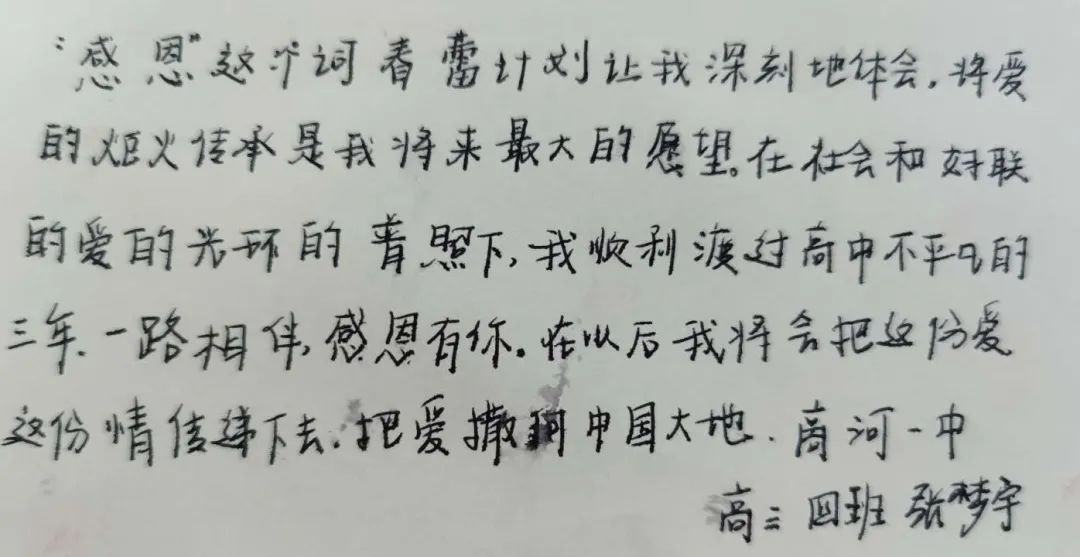 “感恩”这个词春蕾计划让我深刻地体会，将爱
的炬火传承是我将来最大的愿望。在社会和妇联
的爱的光环的普照下，我顺利渡过高中不平凡的
三年.一路相伴,感恩有你。在以后我将会把这份爱
这份情传递下去.把爱撒向中国大地.商河一中
高三四班 张梦宇